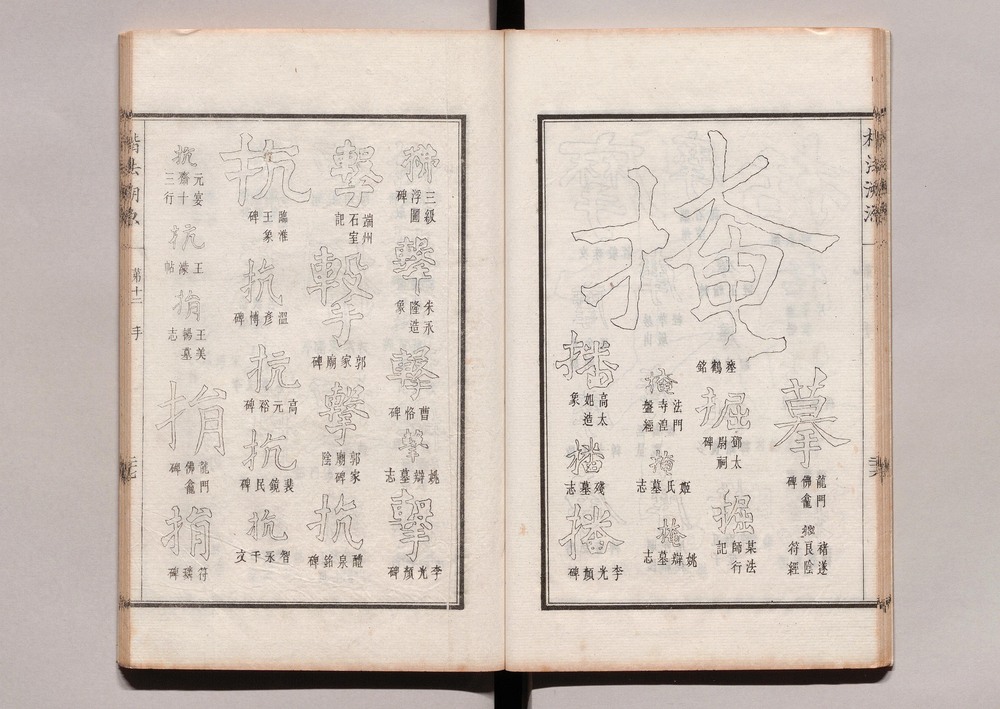 楷法溯源
摹
龍門
佛龕
碑
褚遂
良陰
符經
掩
瘞鶴銘
掘
鄧太
尉祠
碑
掘
某法
師行
記
掩
法門
寺湟
盤經
掩
姬氏墓志
掩
姚辯墓
志
播
高太
妃造
象
播
殘墓志
播
李光顏碑
三級
浮圖
碑
擊
朱永
隆造
象
擊
曹恪碑
擊
姚辯墓志
擊
李光顏碑
擊
端州
石室
記
擊
郭家廟碑
擊
郭家
廟碑
陰
抗
醴泉銘碑
抗
臨淮
王象
碑
抗
溫彥博碑
抗
高元裕碑
抗
裴鏡民碑
抗
智永千文
抗
元宴
齋十
三行
抗
王濛帖
捐
王美
暢墓
志
捐
龍門
佛龕
碑
捐
符璘碑
楷法溯源
第十二
手